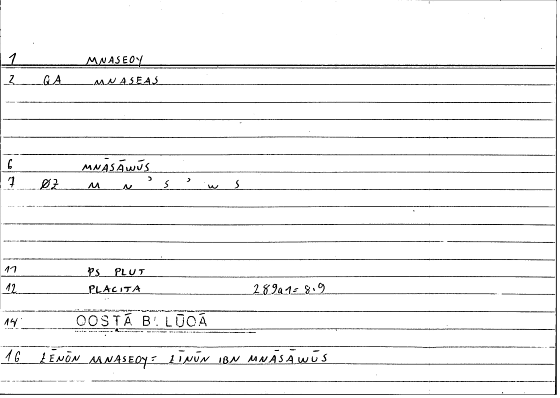 1 MNASEOY
2 GA MNASEAS
6 MNĀSĀWŪS
7 ØZ M N ' S ' W S
11 PS PLUT
12 PLACITA 289a1= 8.9
14 QOSṬĀ B. LŪQĀ
16 ZĒNŌN MNASEOY= ZĪNŪN IBN MNĀSĀWŪS